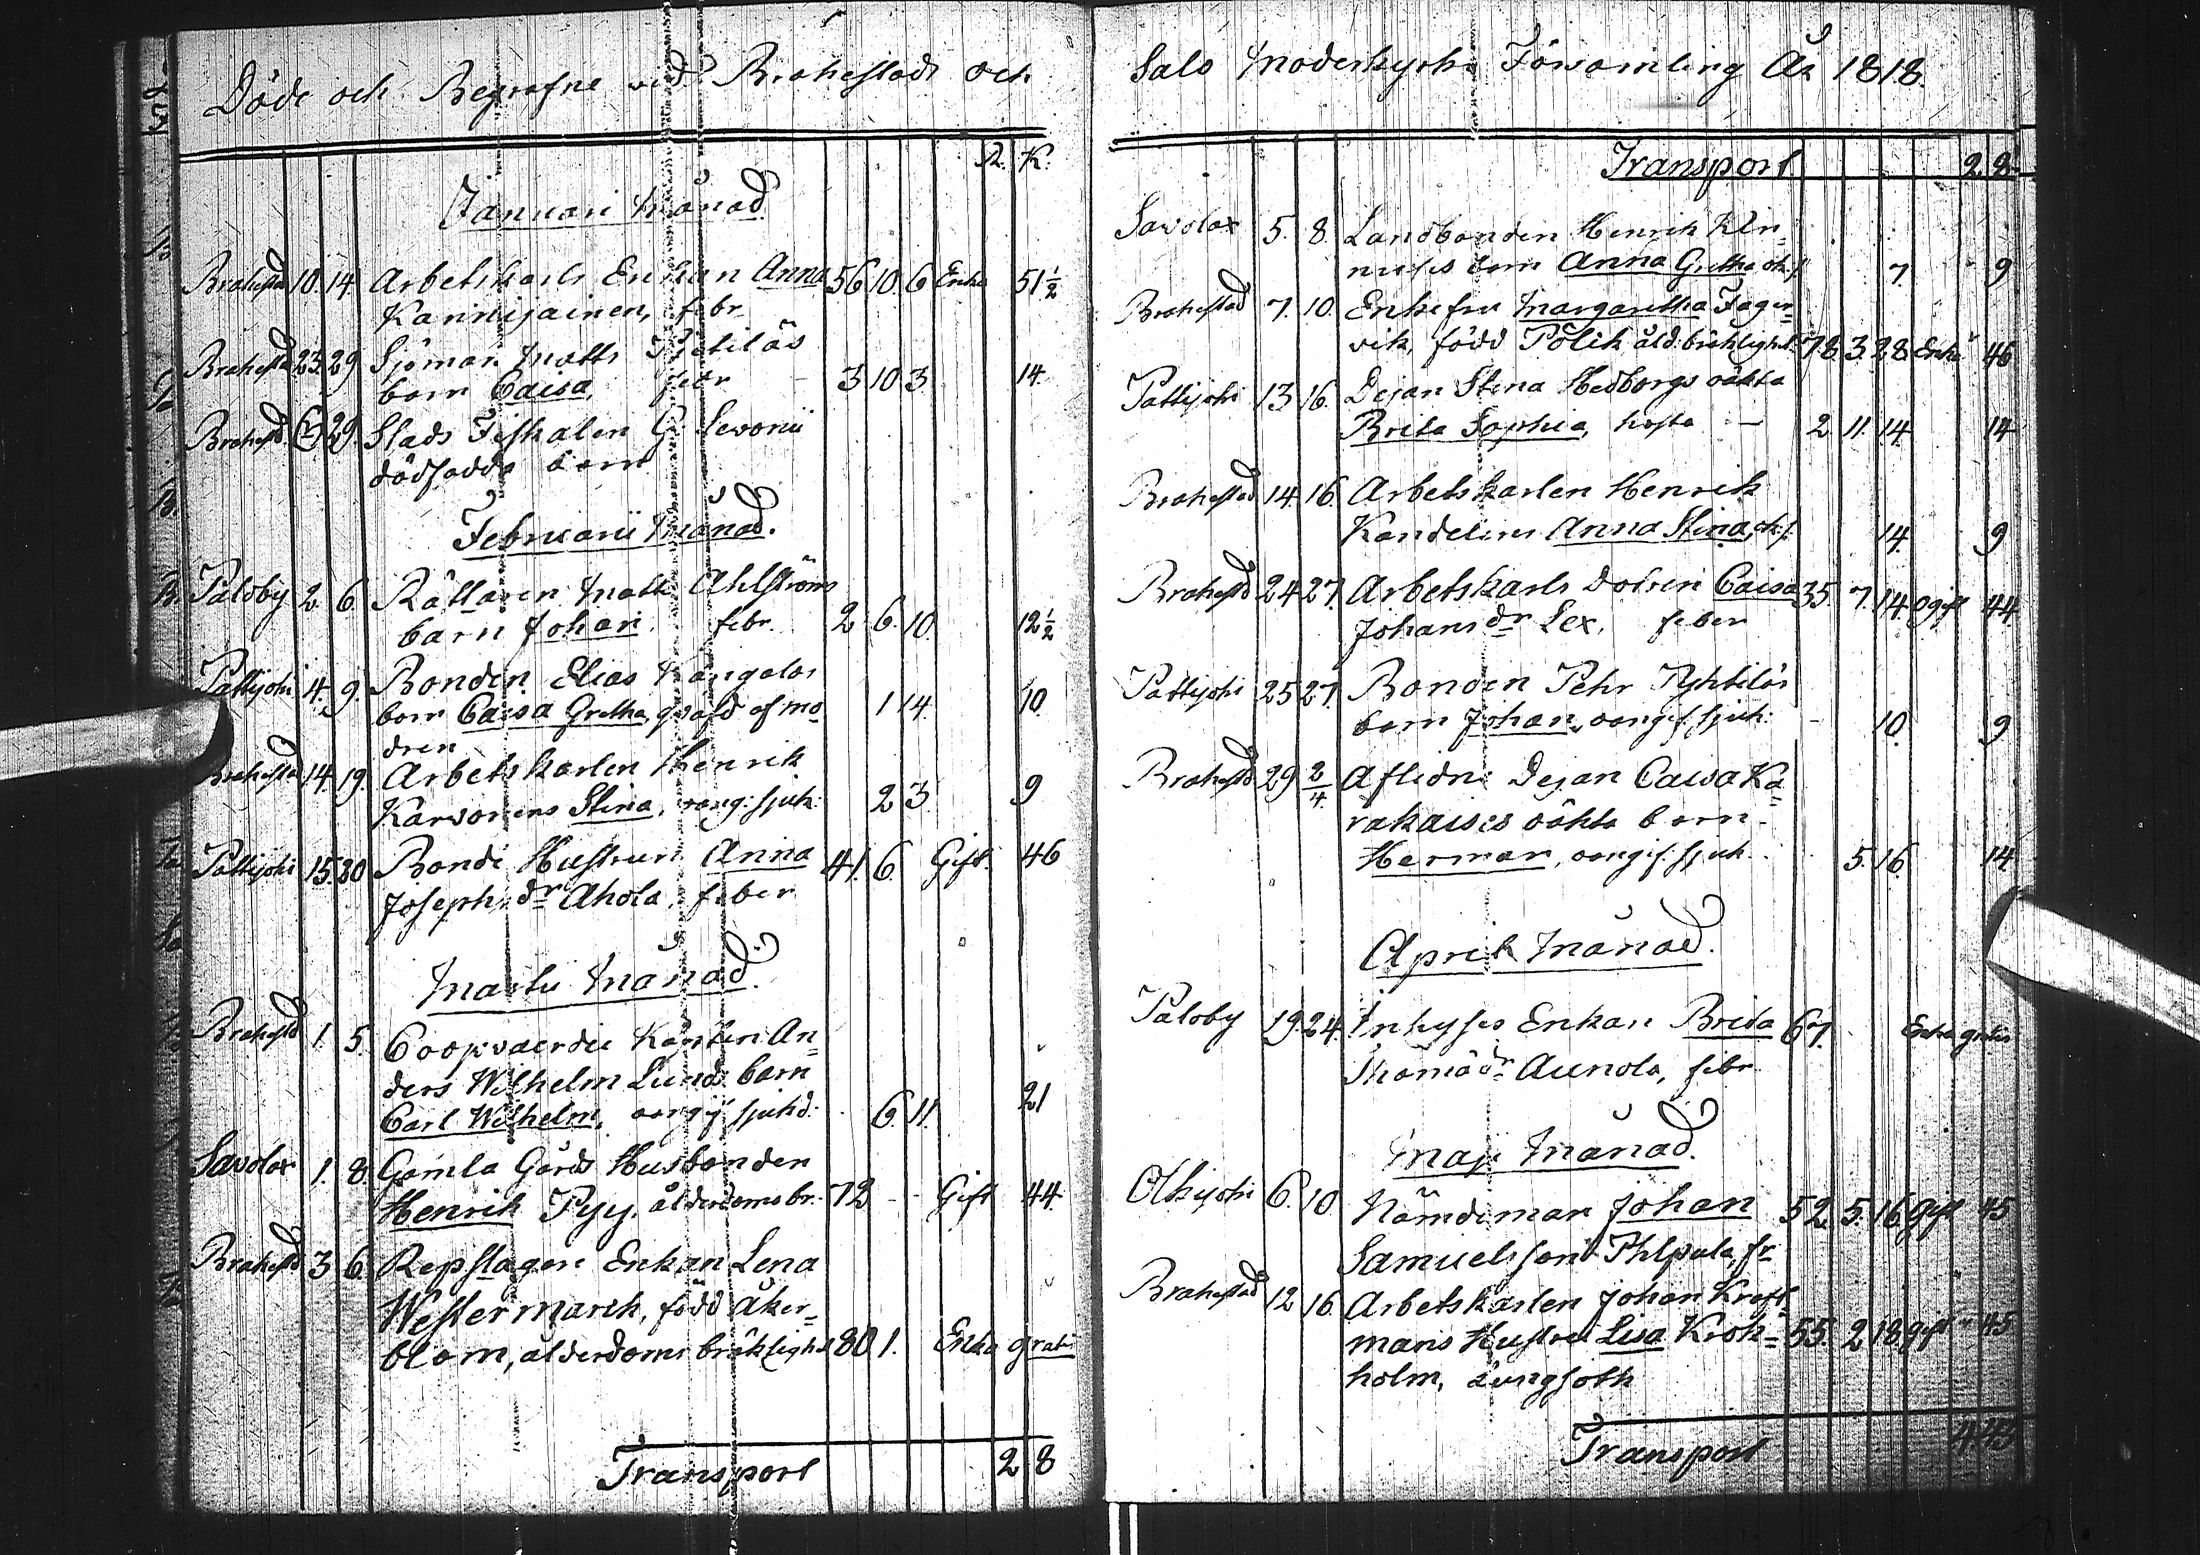 Döde och Begrafne vid Brahestads och
R. K.
Januari Månad
Brahestad 10. 14. Arbetskarls Enkan Anna 56 10. 6 Enka 51½
Kannijainen, febr
Brahestad 23. 29. Sjöman Matts Pietiläs
barn Caisa, febr 3 10 3 14.
Brahestd 29. Stads Fiskalen G. Levonii
dödfödda barn
Februarii Månad.
Paloby 2. 6. Rättaren Matts Ahlströms
barn Johan. febr. 2 6. 10. 12½
Pattijoki 4. 9. Bonden Elias Kangalas
barn Caisa Gretha, qvafd af mo- 1 14. 10.
dren
Brahestad 14. 19. Arbetskarlen Henrik
Karvonens Stina, oang: sjuk: 2 3 9
Pattijoki 15. 20 Bonde Hustrun Anna 41. 6. Gift. 46
Josephs dr Ahola, feber
Martii Månad.
Brahestd 1. 5. Coopvaerdie Kapten An=
ders Wilhelm Lunds barn
Carl Wilhelm, oangif sjukd: 6. 11. 21
Savolax 1. 8. Gamla Gårds Husbonden
Henrik Pyy, ålderdoms br. 72 - - Gift 44.
Brahestd 3 6. Repslagare Enkan Lena
Westermarck, född Åker=
blom, ålderdoms bräklighet 80 1. Enka gratis
Transport 2 8
Salo Moderkyrko Församling År 1818.
Transport 2 8.
Savolax 5. 8. Landbonden Henrik
barn Anna Gretha 7 9
Brahestad 7. 10. Enkefru Margaretha Fager=
vik, född Pölik åld. bräklighet 78. 3. 28 Enka 46
Pattijoki 13 16. Dejan Stina Hedborgs oäkta
Brita Sophia, hosta - 2 11. 14. 14
Brahestad 14. 16. Arbetskarlen Henrik
Kandelins Anna Stina, 14. 9
Brahestd 24 27. Arbetskarls dotren Caisa 35 7. 14. ogift 44
Johans dr Lex, feber
Pattijoki 25 27 Bonden Pehr Pyhtilas
barn Johan, oangif. sjuk: 10. 9
Brahestd 29 2/4 Aflidne Dejan Caisa Ka=
rakaises oäkta barn
Herman, oangif. sjuk. 5. 16. 14
April Månad.
Paloby 19. 24. Inhyses Enkan Brita 67. Enka gratis
Thomæ dr Aunola, febr
Maji Månad.
Olkijoki 6. 10 Nämdeman Johan 52 5. 16. Gift 45
Samuelsson Phlpula, fr
Brahestad 12 16. Arbetskarlen Johan Kraft=
mans Hustru Lisa Krok= 55. 2 18. gift 45
holm, Lungsoth
Transport 4 43